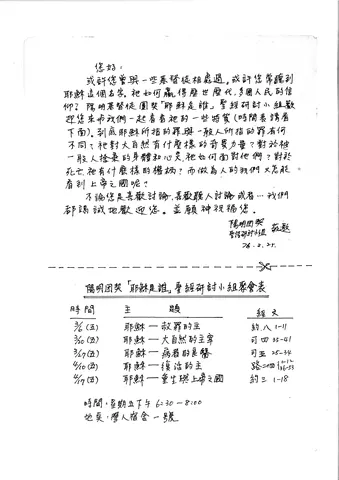 您好:
或許您曾與一些基督徒相處過,或許您常聽到
耶穌這個名字,祂如何贏得歷世歷代,多國人民的信
仰? 陽明基督徒團契「耶穌是誰」聖經研討小組歡
迎您來和我們一起看看祂的一些特質(時間表請看
下面)。到底耶穌所指的罪與一般人所指的罪有何
不同?祂對大自然有什麼樣的奇異力量?對於被
一般人捨棄的身體和心灵,祂如何面對他們?對於
死亡祂有什麼樣的權柄?而做為人的我們又怎能
看到上帝之國呢?
不論您是喜歡討論,喜歡聽人討論或者…我們
都誠誠地歡迎您。並願神祝福您。
陽明團契
聖經研討小組 敬邀
76.2.25.
陽明团契「耶穌是誰」聖經研討小組聚會表
時間 主題 經文
3/6 (五) 耶穌—赦罪的主 約八 1-11
3/20 (五) 耶穌—大自然的主宰 可四 35-41
3/27 (五) 耶穌—病者的良醫 可五 25-34
4/10 (五) 耶穌—復活的主 路二四 1-12 36-53
4/17 (五) 耶穌—重生與上帝之國 約三 1-18
時間:星期五下午 6:30-8:00
地点:學人宿舍一號